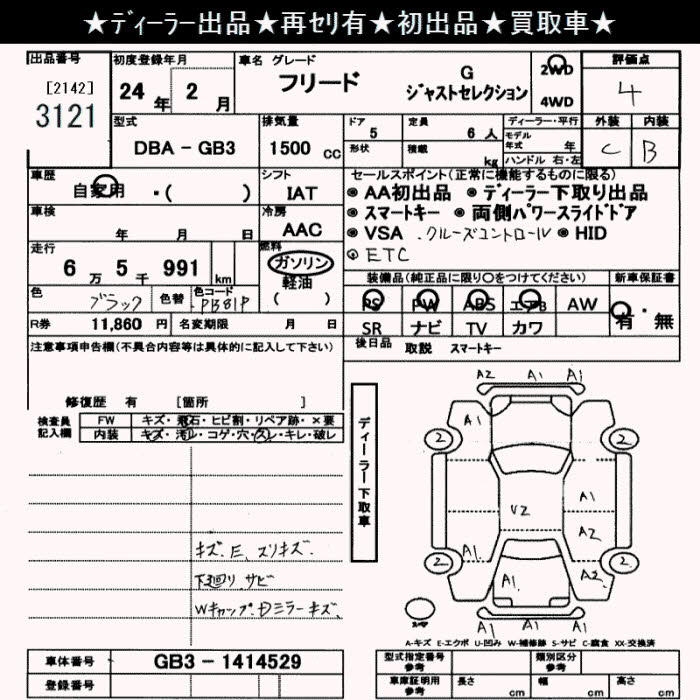 ★ﾃﾞｨｰﾗｰ出品★再ｾﾘ有★初出品★買取車★
出品番号 初度登録年月 車名 グレード 評価点
[2142] 3121
24年 2月 フリード G ジャストセレクション 2WD 4WD 4
型式 排気量 ドア 定員 ディーラー・平行 外装 内装
DBA－GB3 1500cc 5 6人 モデル年式 年 C B
形状 積載 kg ハンドル 右・左
車歴 シフト セールスポイント(正常に機能するものに限る)
自家用 ・( ) IAT ◉AA初出品 ◉ディーラー下取り出品
車検 冷房 ◉スマートキー ◉両側パワースライドドア
年 月 日 AAC ◉VSA .クルーズコントロール ◉HID
走行 燃料 ◉ETC
6万5千991km ガソリン 軽油 ( )
装備品(純正品に限り○をつけてください) 新車保証書
色 ブラック 色替 色コード PB81P PS PW ABS エアB AW 有・無
R券 11,860円 名変期限 月 日 SR ナビ TV カワ
注意事項申告欄(不具合内容等は具体的に記入して下さい) 後日品 取説 スマートキー
修復歴 有 [箇所 ]
検査員記入欄 FW キズ・飛石・ヒビ割・リペア跡・×要
内装 キズ・汚レ・コゲ・穴・スレ・キレ・破レ
ディーラー下取車
A2 A1 A1
A1
2 2
A1
V2 A2
A1
2 2
A1 A2
A1 A1 A1
キズ、E、スリキズ、
下廻り、サビ
Wキャップ・Dミラーキズ、
A-キズ E-エクボ U-凹み W-補修跡 S-サビ C-腐食 XX-交換済
車体番号 GB3－1414529 型式指定番号 参考 類別区分 参考
登録番号 車庫証明用 参考 長さ cm 幅 cm 高さ cm